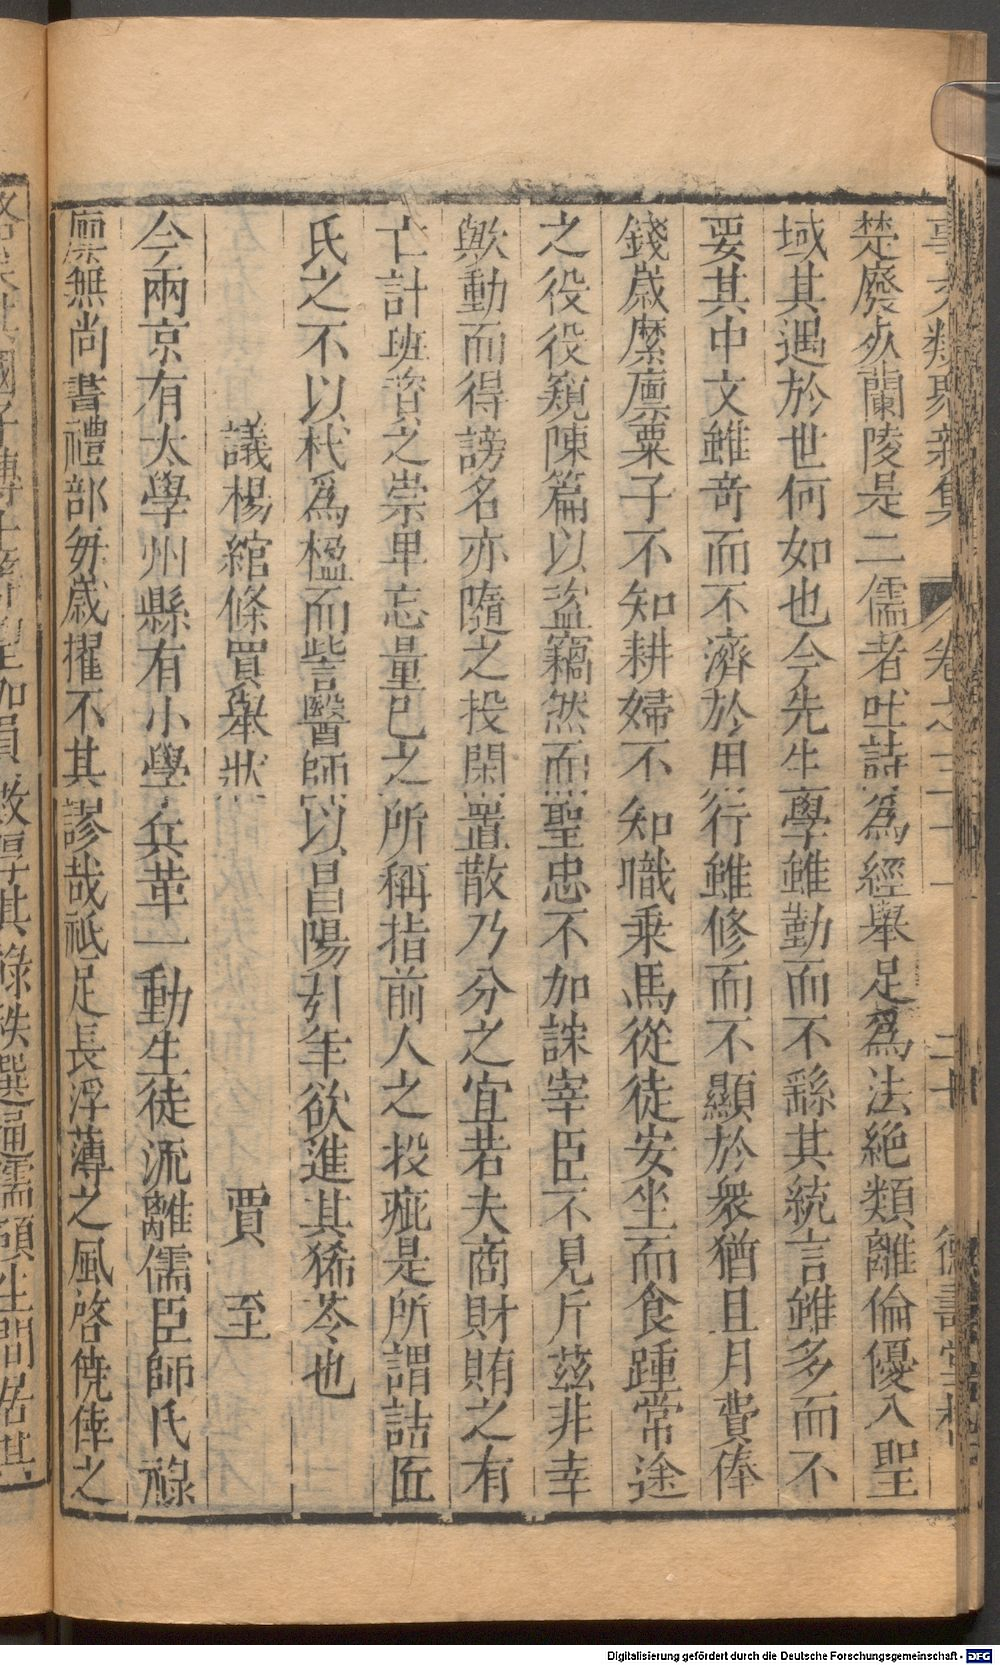 事文類聚新集 卷之三十一 二十 德壽堂梓
楚廢死蘭陵是二儒者吐詩爲經舉足爲法絶類離倫優入聖
域其遇於世何如也今先生學雖勤而不繇其統言雖多而不
要其中文雖竒而不濟於用行雖修而不顯於衆猶且月費俸
錢歲縻廪粟子不知耕婦不知職乗馬從徒安坐而食踵常途
之役役窺陳篇以盗竊然而聖忠不加誅宰臣不見斥茲非幸
歟動而得謗名亦隨之投閑置散乃分之宜若夫商財賄之有
亡計班資之崇卑忘量已之所稱指前人之投疵是所謂詰匠
氏之不以杙爲楹而訾醫師以昌陽引年欲進其狶苓也
議楊綰條貢舉狀 賈至
今兩京有太學州縣有小學兵革一動生徒流離儒臣師氏祿
廪無尚書禮部每歲擢不其謬哉祗足長浮薄之風啓僥倖之